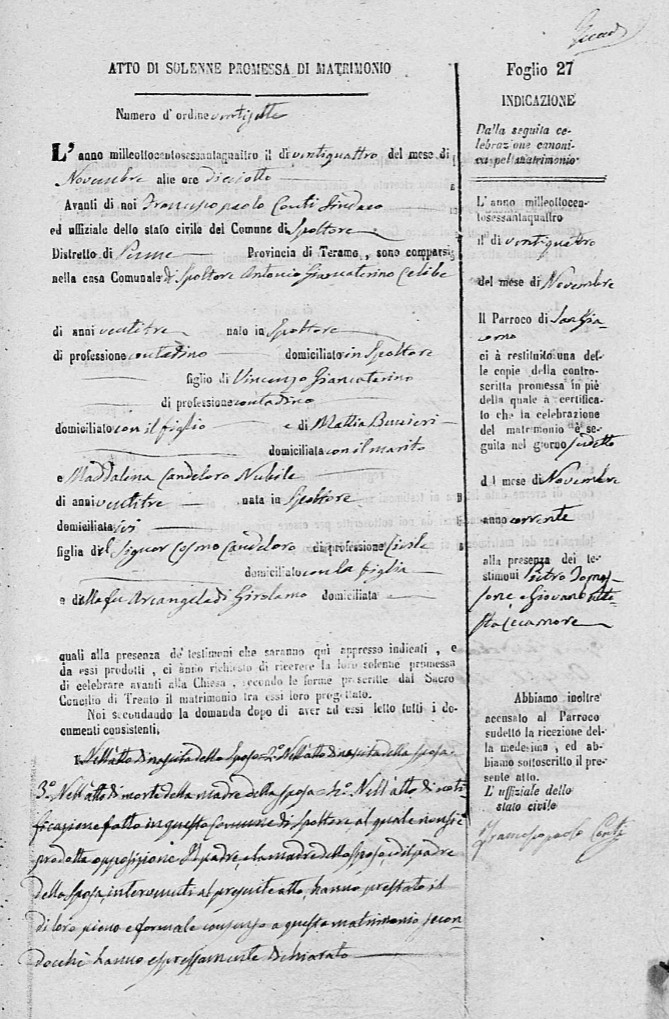 ATTO DI SOLENNE PROMESSA DI MATRIMONIO
Numero d'ordine ventisette
L'anno milleottocentosessantaquattro il dì ventiquattro del mese di
Novembre alle ore diciotto
Avanti di noi Francesco paolo Conti Sindaco
ed uffiziale dello stato civile del Comune di Spoltore
Distretto di Penne Provincia di Teramo, sono comparsi
nella casa Comunale di Spoltore Antonio Giancaterino Celibe
di anni ventitre nato in Spoltore
di professione contadino domiciliato in Spoltore
figlio di Vincenzo Giancaterino
di professione contadino
domiciliato con il figlio e di Mattia Buccieri
domiciliata con il marito
e Maddalena Candeloro Nubile
di anni ventitre nata in Spoltore
domiciliata ivi
figlia del Signor Cosmo Candeloro di professione Civile
domiciliato con la figlia
e della fu Arcangela di Girolamo domiciliata
quali alla presenza de' testimoni che saranno qui appresso indicati, e
da essi prodotti, ci ànno richiesto di ricevere la loro solenne promessa
di celebrare avanti alla Chiesa, secondo le forme prescritte dal Sacro
Concilio di Trento il matrimonio tra essi loro progettato.
Noi secondando la domanda dopo di aver ad essi letto tutti i do-
cumenti consistenti,
1. Nell'atto di nascita dello sposo = 2° Nell'atto di nascita della sposa =
3° Nell'atto di morte della madre della sposa = 4° Nell'atto di noti
ficazione fatto in questo Comune di Spoltore al quale non si è
prodotta opposizione Il padre, e la madre dello sposo, ed il padre
della sposa, intervenuti al presente atto, hanno prestato il
di loro pieno e formale consenso a questo matrimonio, secon
docchè hanno espressamente dichiarato
Foglio 27
INDICAZIONE
Dalla seguita ce-
lebrazione canoni-
ca pel matrimonio
L'anno milleottocen-
tosessantaquattro
il dì ventiquattro
del mese di Novembre
Il Parroco di San Gia
como
ci à restituito una del-
le copie della contro-
scritta promessa in piè
della quale à certifica-
to che la celebrazione
del matrimonio è se-
guita nel giorno sudetto
del mese di Novembre
anno corrente
alla presenza dei te-
stimoni Pietro Tomas
sone e Giovan Batti
sta Cecamore
Abbiamo inoltre
accusato al Parroco
sudetto la ricezione del-
la medesima, ed ab-
biamo sottoscritto il pre-
sente atto.
L'uffiziale dello
stato civile
Francesco paolo Conti